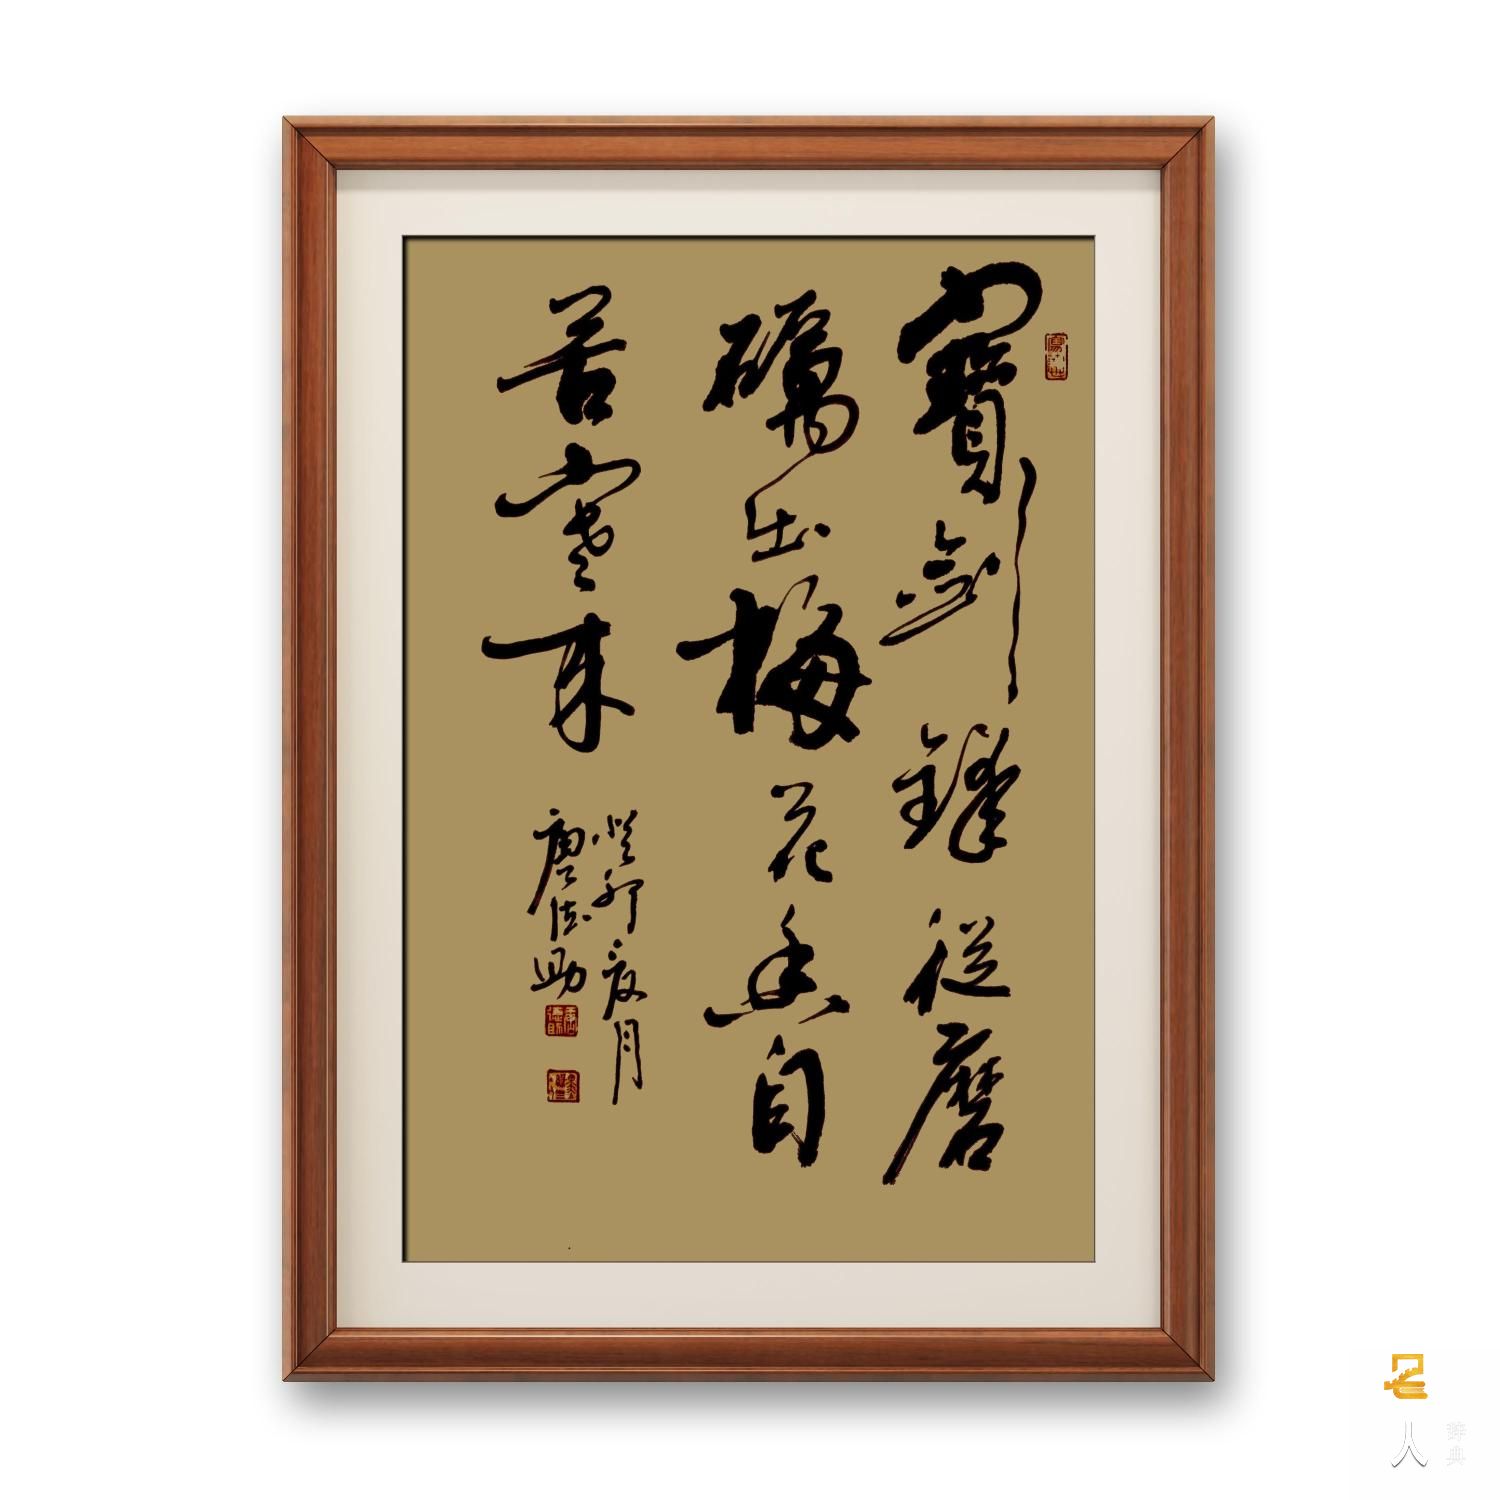 寶劍鋒從磨
礪出梅花香自
苦寒來
癸卯夏月
唐德勛
名人
辞典